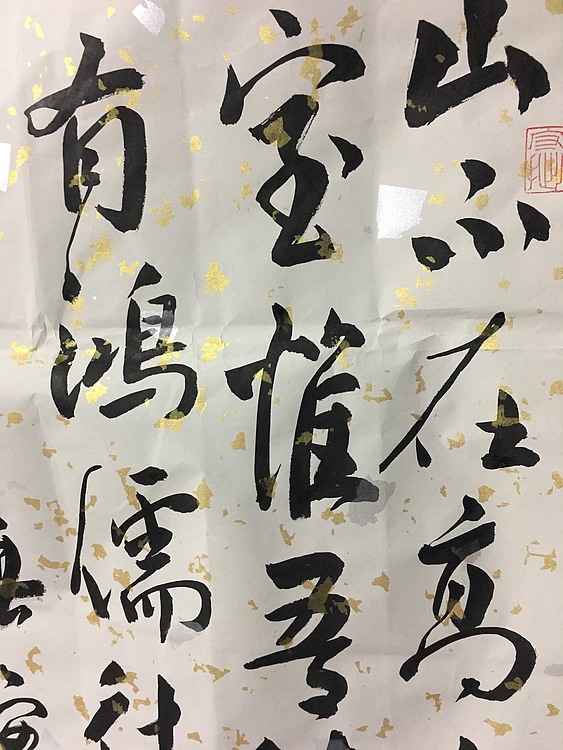 山不在高
室惟吾
有鸿儒往